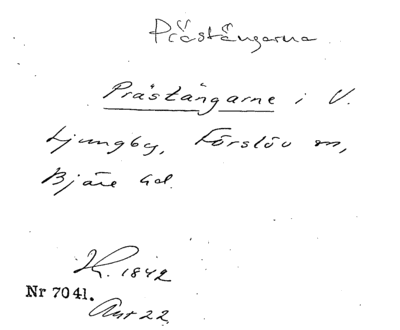 Prästängarna
Prästängarne i V.
Ljungby, Förslöv sn,
Bjäre hd.
1842
Nr 7041.
Akt 22